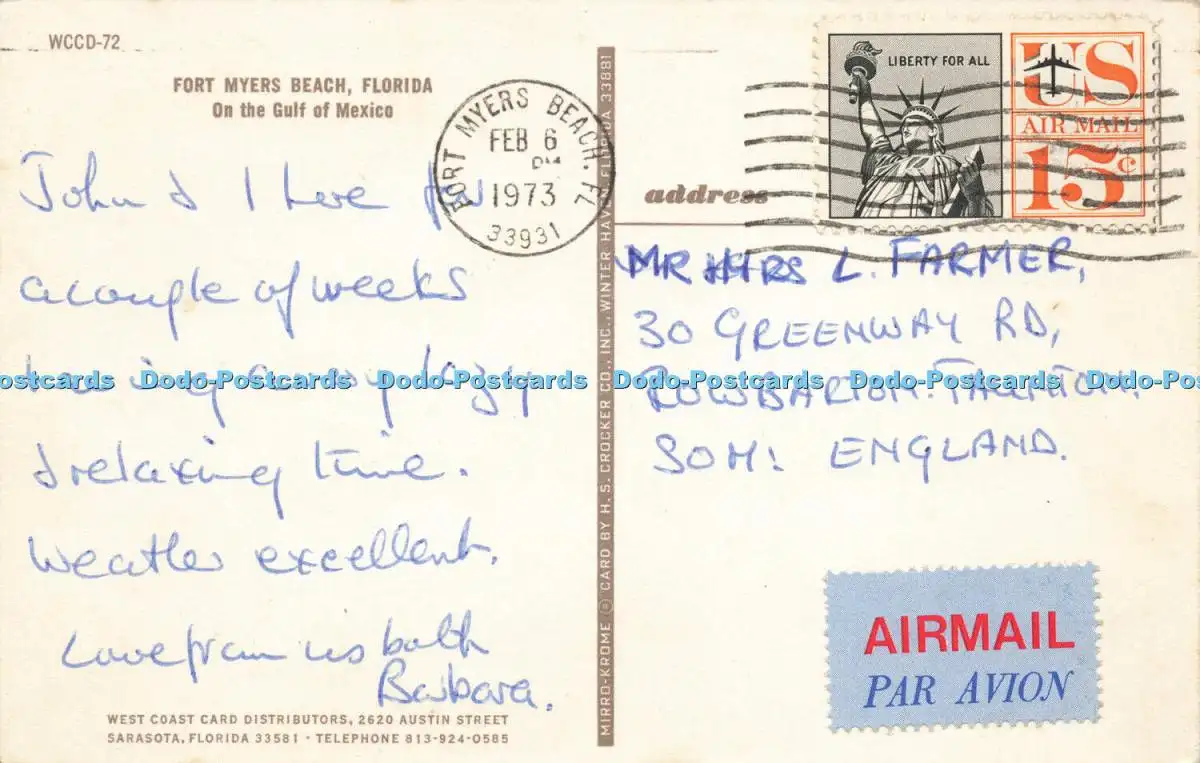 WCCD-72
FORT MYERS BEACH, FLORIDA
On the Gulf of Mexico
John & I here for
a couple of weeks
having a lazy
& relaxing time.
Weather excellent.
Love from us both
Barbara.
WEST COAST CARD DISTRIBUTORS, 2620 AUSTIN STREET
SARASOTA, FLORIDA 33581 · TELEPHONE 813-924-0585
MIRRO-KROME ® CARD BY H. S. CROCKER CO., INC., WINTER HAVEN, FLORIDA 33881
FORT MYERS BEACH, FL
FEB 6
PM
1973
33931
LIBERTY FOR ALL
US
AIR MAIL
15c
address
MR & MRS L. FARMER,
30 GREENWAY RD,
ROWBARTON. TAUNTON.
SOM: ENGLAND.
AIRMAIL
PAR AVION
Dodo-Postcards Dodo-Postcards Dodo-Postcards Dodo-Postcards